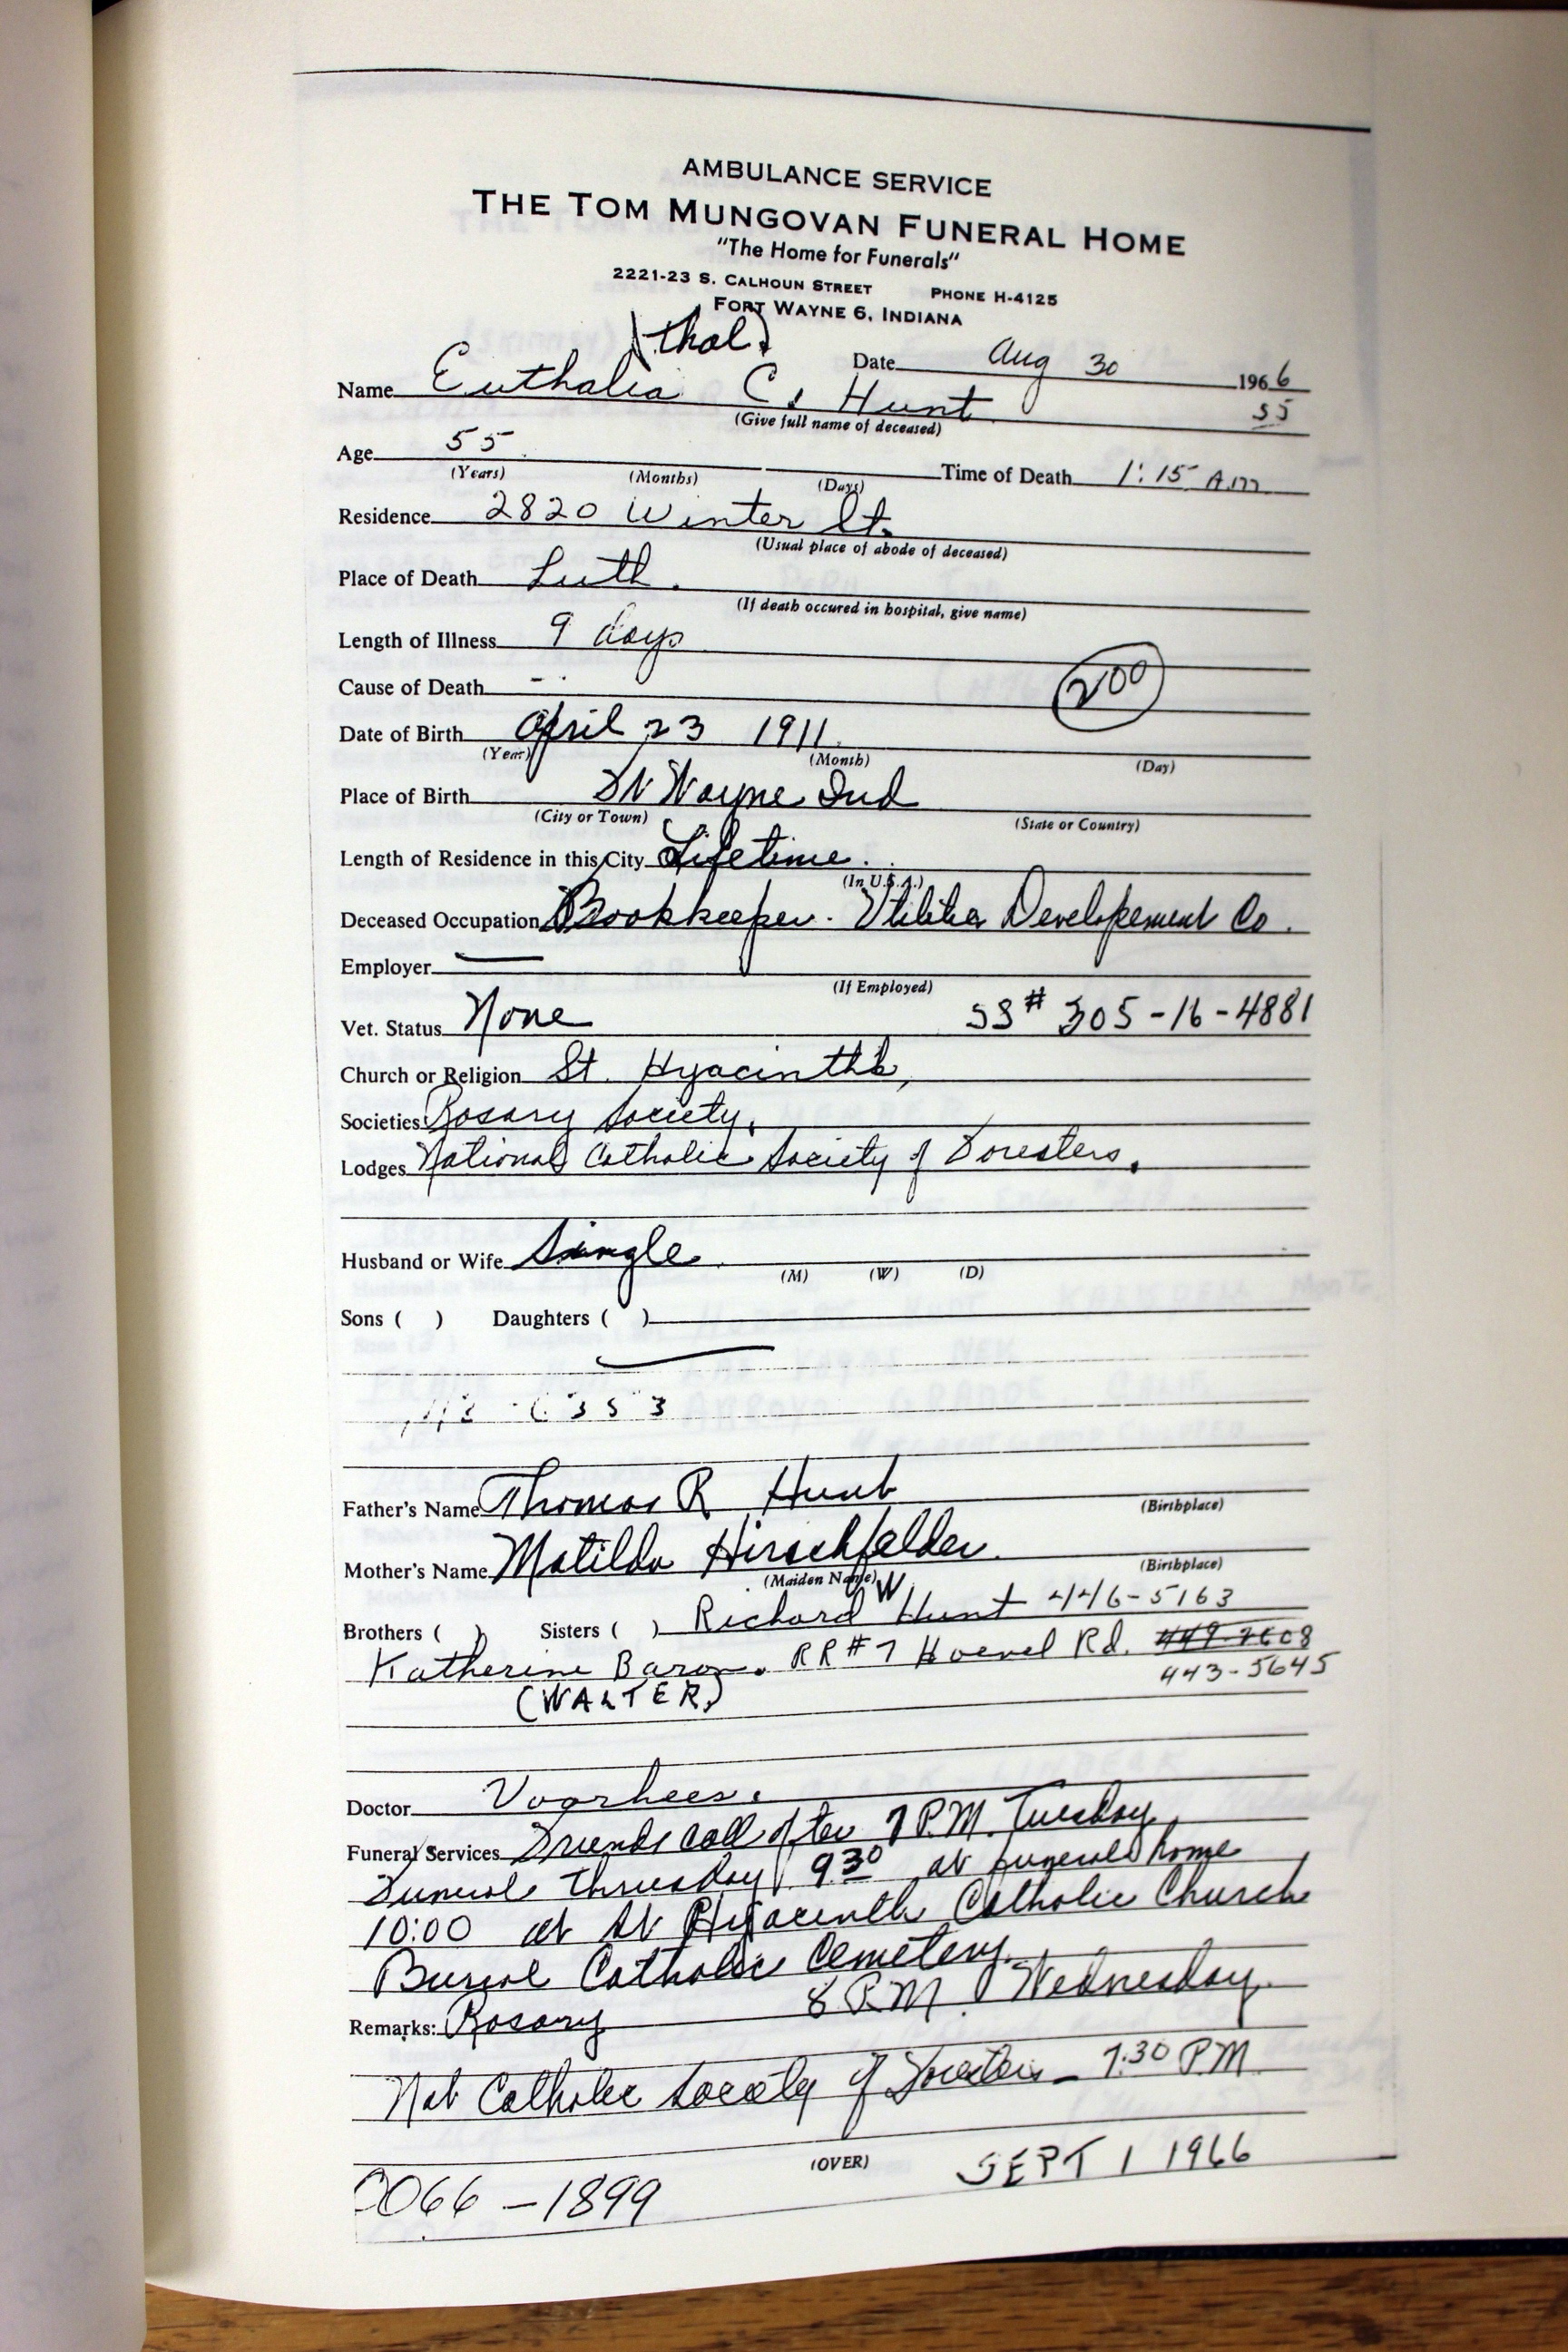 AMBULANCE SERVICE
THE TOM MUNGOVAN FUNERAL HOME
"The Home for Funerals"
2221-23 S. CALHOUN STREET PHONE H-4125
FORT WAYNE 6, INDIANA
(thal)
Date Aug 30 1966
Name Euthalia C. Hunt 55
(Give full name of deceased)
Age 55 Time of Death 1:15 A.M
(Years) (Months) (Days)
Residence 2820 Winter St.
(Usual place of abode of deceased)
Place of Death Luth.
(If death occured in hospital, give name)
Length of Illness 9 days
Cause of Death - . 200
Date of Birth April 23 1911
(Year) (Month) (Day)
Place of Birth Ft Wayne Ind
(City or Town) (State or Country)
Length of Residence in this City Lifetime.
(In U.S.A.)
Deceased Occupation Bookkeeper. Utilities Developement Co.
Employer —
(If Employed)
Vet. Status None SS# 305-16-4881
Church or Religion St. Hyacinth's,
Societies Rosary Society,
Lodges National Catholic Society of Foresters.
Husband or Wife Single
(M) (W) (D)
Sons ( ) Daughters ( )
Father's Name Thomas R Hunt
(Birthplace)
Mother's Name Matilda Hirschfelder.
(Maiden Name) (Birthplace)
Brothers ( ) Sisters ( ) Richard W Hunt 446-5163
Katherine Baron. RR#7 Hoevel Rd. 449-7608
(WALTER) 443-5645
Doctor Voorhees.
Funeral Services Friends call after 7 P.M. Tuesday
Funeral Thrusday 9 30 at funeral home
10:00 at St Hyacinth Catholic Church
Burial Catholic Cemetery.
Remarks: Rosary 8 P.M. Wednesday.
Nat Catholic Society of Foresters - 7:30 PM
(OVER)
SEPT 1 1966
066-1899